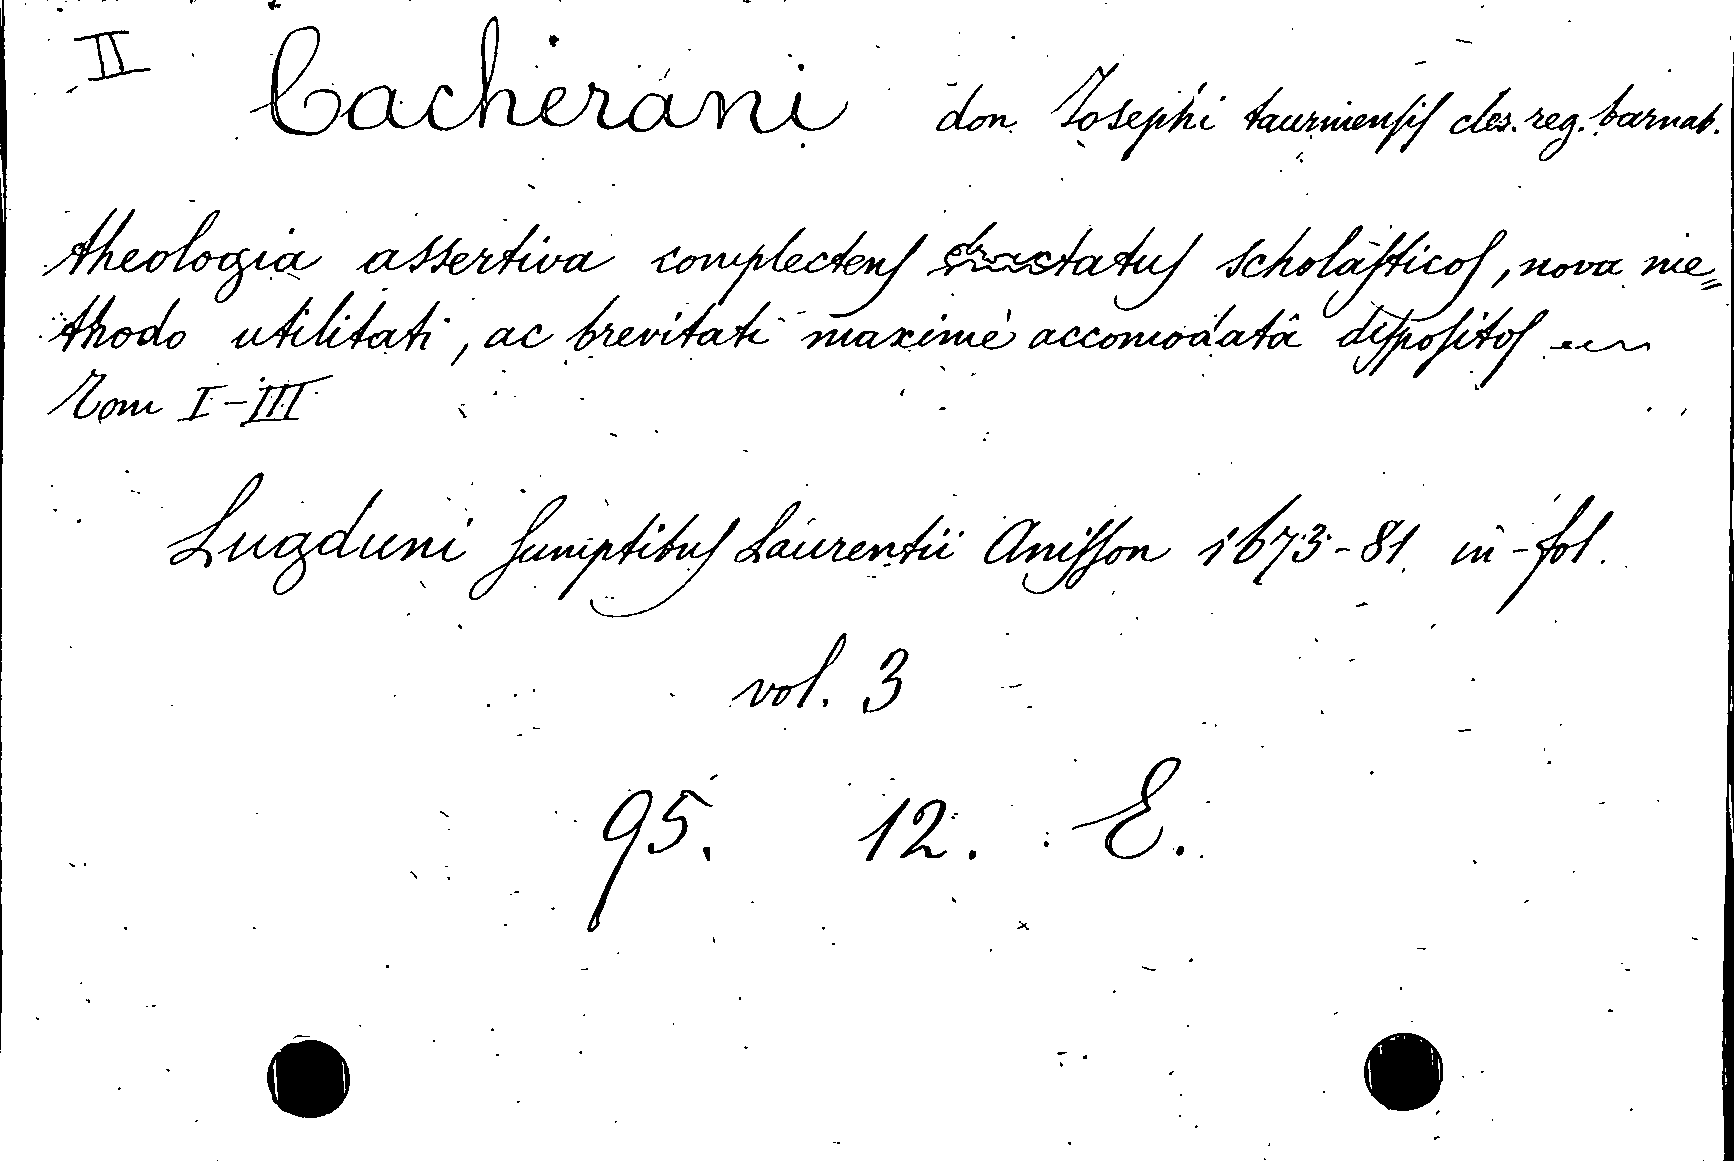 II Cacherani don Iosephi tauriniensis cles. reg. barnab.
theologia assertiva complectens tractatus scholasticos, nova me=
thodo utilitati, ac brevitati maximè accomodatâ dispositos
Tom I-III
Lugduni sumptibus Laurentii Anisson 1673-81. in-fol.
vol. 3
95. 12. E.